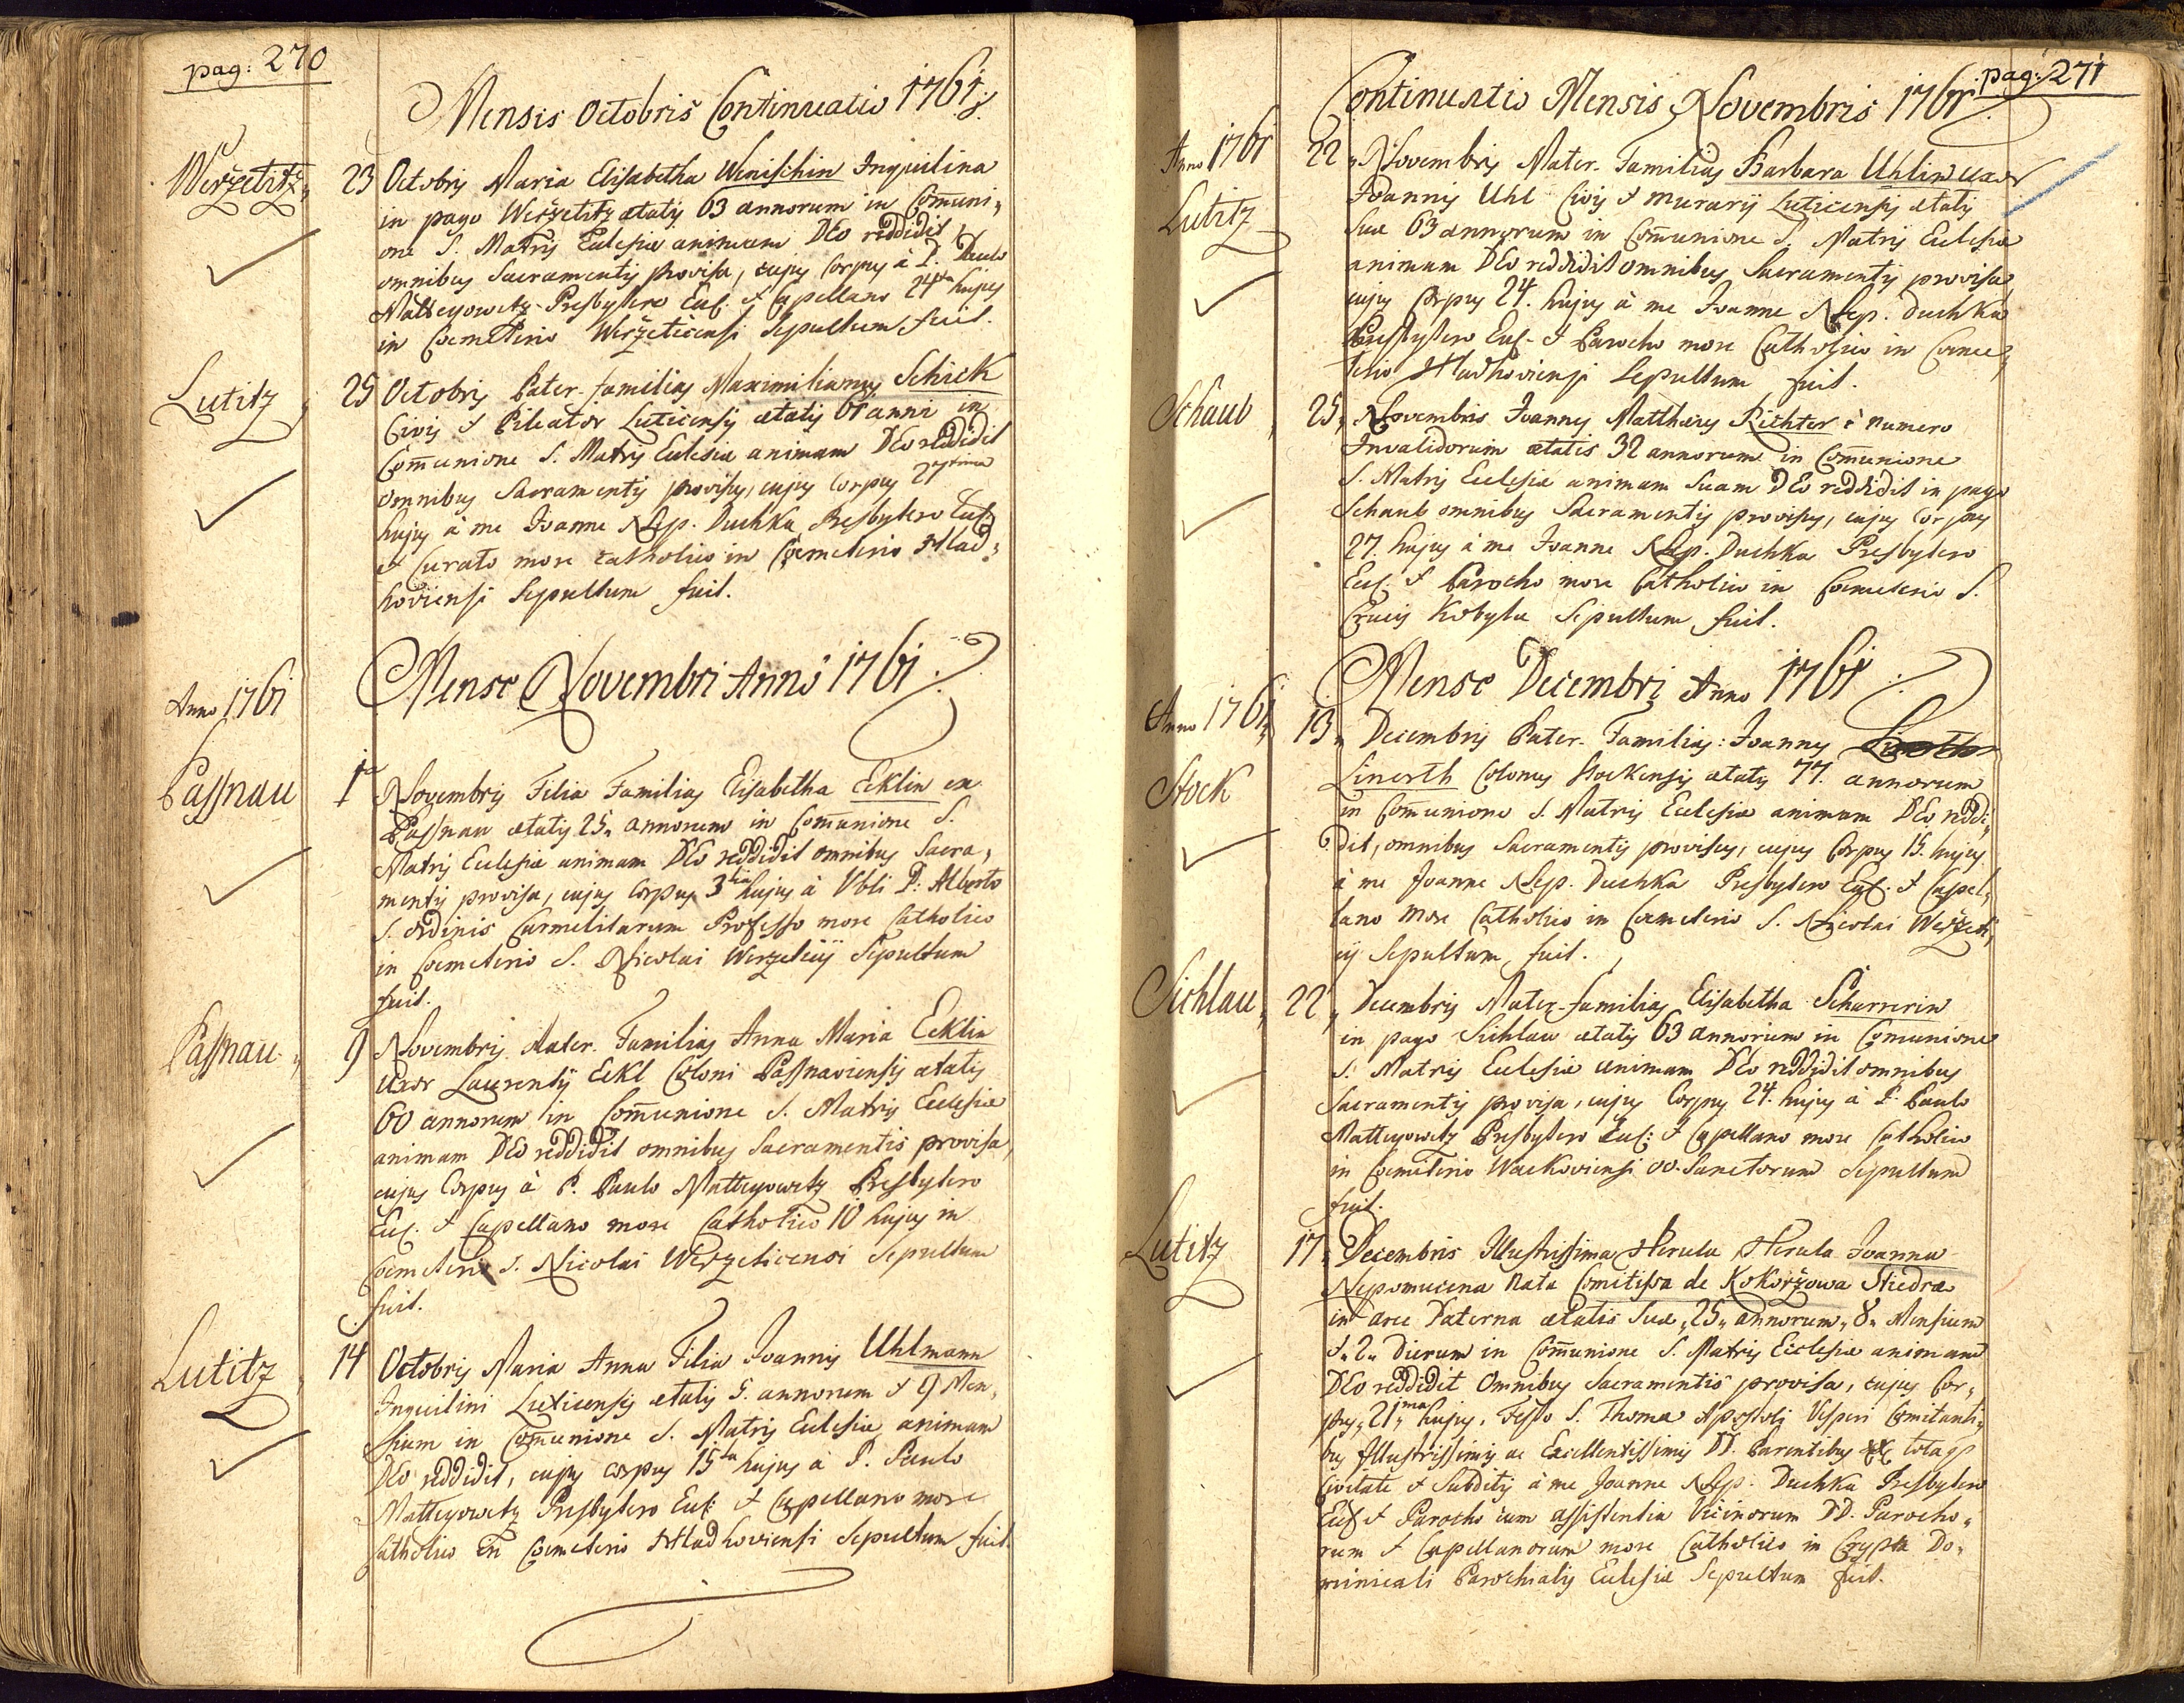 pag: 270
Mensis Octobris Continuatio 1761.
Weržetitz, 23 Octobris Maria Elisabetha Wenischin Inquilina
in pago Weržetitz ætatis 63 annorum in Com̄uni,
one S. Matris Eccle​siæ animam DEo reddidit
omnibus Sacramentis provisa, cujus Corpus à P. Paulo
Matteyowetz Presbytero Eccl. & Capellano 24ta hujus
in Coemeterio Weržeticensi Sepultum fuit.
Lutitz, 25 Octobris Pater-familias Maximilianus Schick
Civis & Pileator Luticensis ætatis 61 anni in
Com̄unione S. Matris Ecclesiæ animam DEo reddidit
omnibus Sacramentis provisus, cujus Corpus 27tima
hujus à me Joanne Nep. Duchka Presbytero Eccl.
& Curato more catholico in Coemeterio Hlad,
koviensi Sepultum fuit.
Mense Novembri Anno 1761
Anno 1761
Passnau 1a Novembris Filia Familias Elisabetha Ecklin ex
Passnau ætatis 25. annorum in Com̄unione S.
Matris Ecclesiæ animam DEo reddidit omnibus Sacra,
mentis provisa, cujus Corpus 3tia hujus à Vbli P: Alberto
S. Ordinis Carmelitarum Professo more Catholico
in Coemeterio S. Nicolai Weržeticij Sepultum
fuit.
Passnau, 9 Novembris Mater Familias Anna Maria Ecklin
Uxor Laurentij Eckl Coloni Passnaviensis ætatis
60 annorum in Com̄unione S. Matris Ecclesiæ
animam DEo reddidit omnibus Sacramentis provisa,
cujus Corpus à P. Paulo Matteyowetz Presbytero
Eccl. & Capellano more Catholico 10 hujus in
Coemeterio S. Nicolai Weržeticensi Sepultum
fuit.
Lutitz, 14 Octobris Maria Anna Filia Joannis Uhlmann
Inquilini Luticensis ætatis 5. annorum & 9 Men,
sium in Com̄unione S. Matris Ecclesiæ animam
DEo reddidit, cujus corpus 15ta hujus à P. Paulo
Matteyowetz Presbytero Eccl: & Capellano more
catholico in Coemeterio Hladkoviensi Sepultum fuit.
pag: 271
Continuatio Mensis Novembris 1761
Anno 1761 22 Novembris Mater-Familias Barbara Uhlin uxor
Lutitz Joannis Uhl Civis & Murarij Luticensis ætatis
Suæ 63 annorum in Com̄unione S. Matris Ecclesiæ
animam DEo reddidit omnibus Sacramentis provisa,
cujus Corpus 24. hujus à me Joanne Nep. Duchka
Presbytero Eccl. & Parocho more Catholico in Coeme,
terio Hladkoviensi Sepultum fuit.
Schaub, 25, Novembris Joannes Matthæus Richter è Numero
Invalidorum ætatis 32 annorum in Com̄unione
S. Matris Ecclesiæ animam Suam DEo reddidit in pago
Schaub omnibus Sacramentis provisus, cujus Corpus
27. hujus à me Joanne Nep. Duchka Presbytero
Eccl. & Parocho more Catholico in Coemeterio S.
Crucis Kobyla Sepultum fuit.
Mense Decembri Anno 1761
Anno 1761, 13, Decembris Pater-Familias: Joannes
Stock Linerth Colonus Stockensis ætatis 77. annorum
in Com̄unione S. Matris Ecclesiæ animam DEo reddi,
dit, omnibus Sacramentis provisus, cujus Corpus 15. hujus
à me Joanne Nep. Duchka Presbytero Eccl. & Capel,
lano more Catholico in Coemeterio S. Nicolai Weržeti,
cij Sepultum fuit.
Sichlau, 22, Decembris Mater-familias Elisabetha Scharrerin
in pago Sichlau ætatis 63 annorum in Comunione
S. Matris Ecclesiæ animam DEo reddidit omnibus
Sacramentis provisa, cujus Corpus 24. hujus à P. Paulo
Matteyowetz Presbytero Eccl: & Capellano more Catholico
in Coemeterio Wackoviensi OO. Sanctorum Sepultum
fuit.
Lutitz 17, Decembris Illustrissima Herula Herula Joanna
Nepomucena Nata Comitissa de Kokoržowa Stiedra
in arce Paterna ætatis Suæ „25„ annorum„ 8„ Mensium
& „2„ Dierum in Com̄unione S. Matris Ecclesiæ animam
DEo reddidit Omnibus Sacramentis provisa, cujus Cor,
pus „21ma hujus, Festo S. Thomæ Apostoli Vesperi Comitanti,
bus Illustrissimis ac Excellentissimis DD. Parentibus totaq
Civitate & Subditis à me Joanne Nep. Duchka Presbytero
Eccl & Parocho cum assistentia Vicinorum DD. Parocho,
rum & Capellanorum more Catholico in Crypta Do,
minicali Parochialis Ecclesiæ Sepultum fuit.